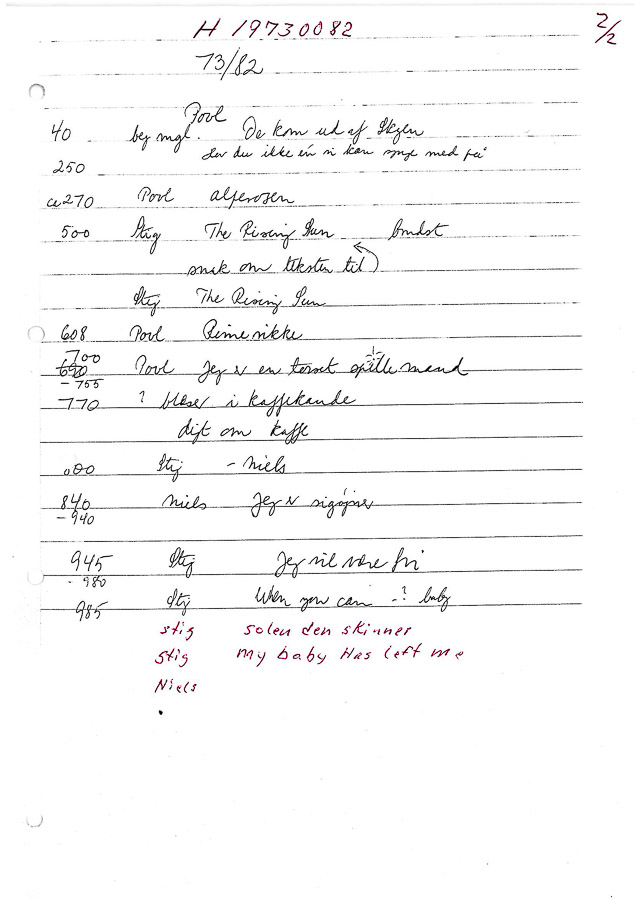 H 19730082
2/2
73/82
Povl
40 beg mgl. De kom ud af Skyen
Ler du ikke én vi kan synge med på
250
ca 270 Povl alperosen
500 Stig The Rising Sun
snak om teksten til
Stig The Rising Sun
608 Povl Rimerikke
700
Povl Jeg er en tosset spillemand
- 755
770 ? blæser i kaffekande
digt om kaffe
000 Stig - Niels
840 Niels Jeg er sigøjner
- 940
945 Stig Jeg vil være fri
- 980
985 Stig When you can -? baby
stig solen den skinner
stig my baby Has left me
Niels